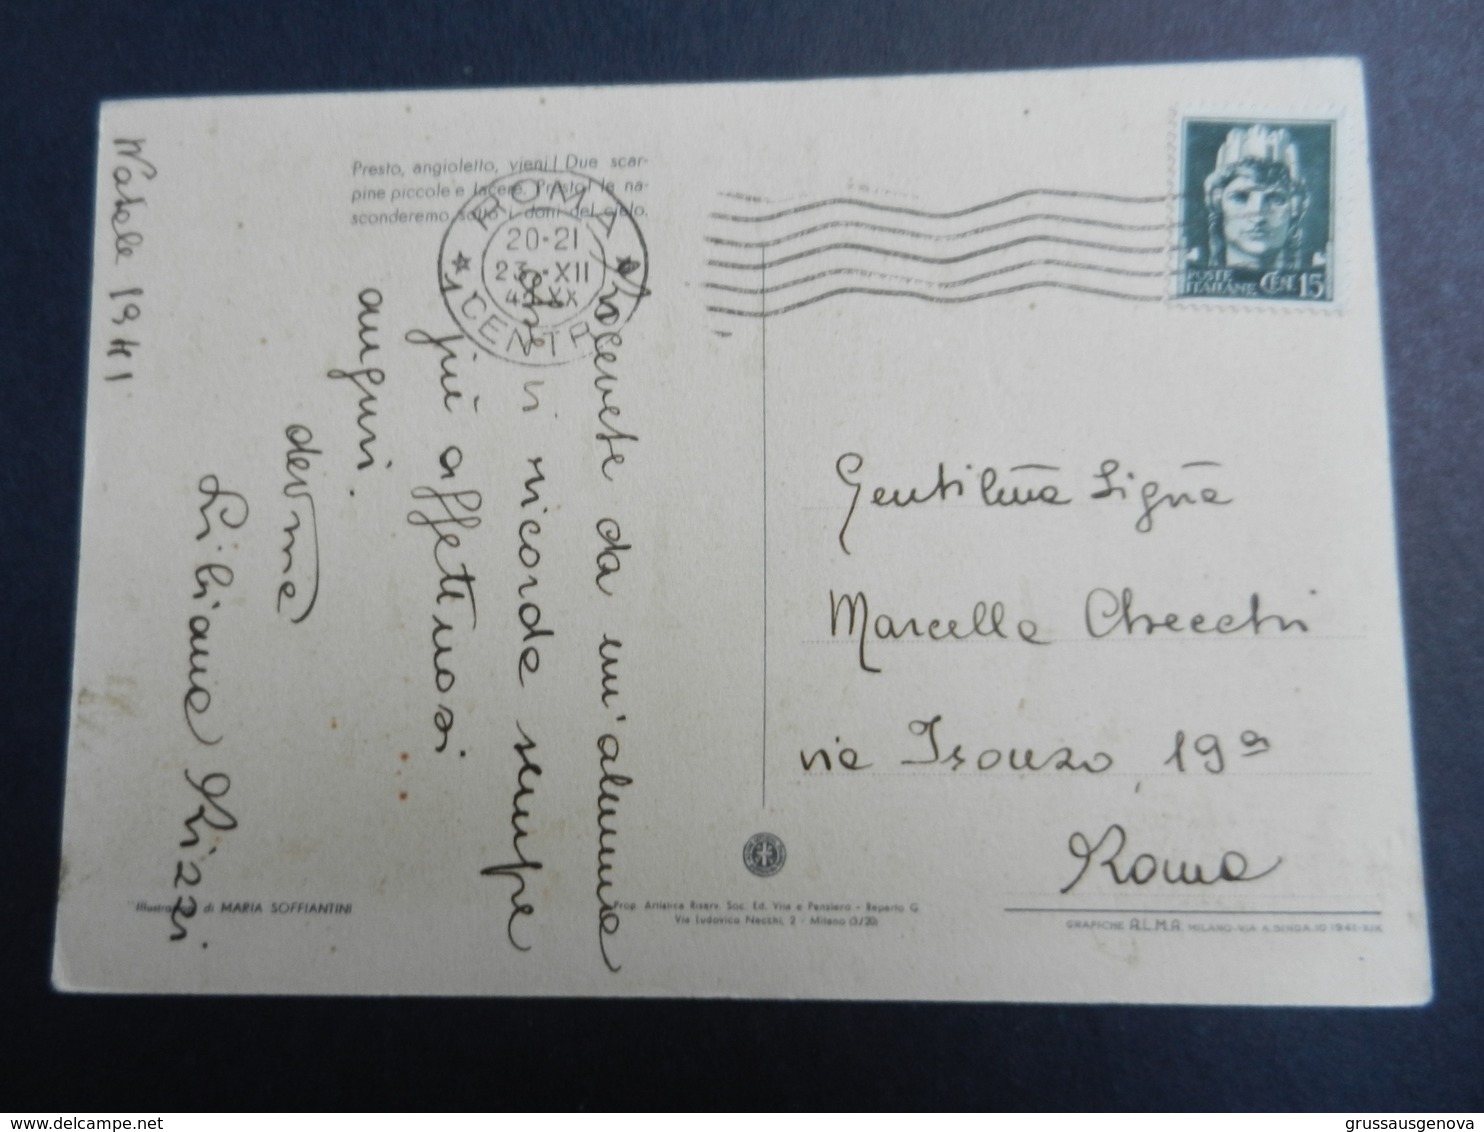 Natale 1941
Presto, angioletto, vieni! Due scar-
pine piccole e lacere. Presto! le na-
sconderemo sotto i doni del cielo.
ROMA
20-21
23 XII
CENTR
POSTE
ITALIANE CEN. 15
Ricevete da un'alunna
che vi ricorda sempre
più affettuosi
auguri.
dev.ma
Liliana Rizzi
Gentil.ma Sig.ra
Marcella Checchi
via Isonzo, 19a
Roma
Illustrazioni di MARIA SOFFIANTINI
Prop. Artistica Riserv. Soc. Ed. Vita e Pensiero - Reparto G.
Via Ludovico Necchi, 2 - Milano (3/20)
GRAFICHE A.L.M.A. MILANO-VIA A. BINDA, 10 1941-XIX
grussausgenova